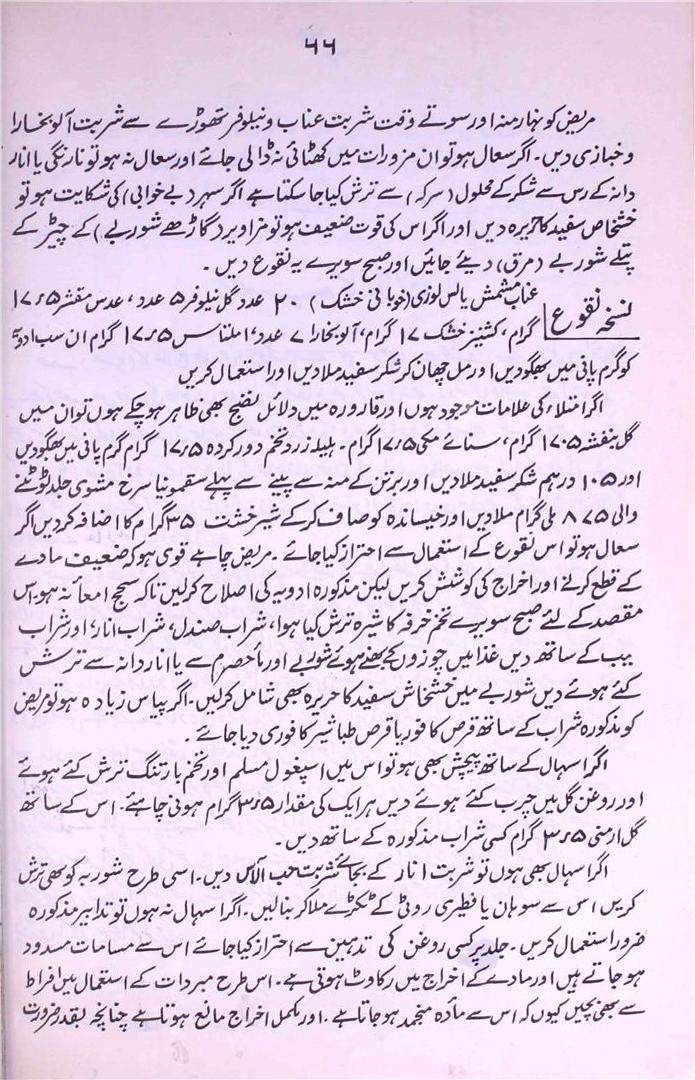 ۶۶
مریض کو نہار منہ اور سوتے وقت شربت عناب و نیلوفر تھوڑے سے شربت آلو بخارا
و خبازی دیں۔ اگر سعال ہو تو ان مزورات میں کھٹائی نہ ڈالی جائے اور سعال نہ ہو تو نارنگی یا انار
دانہ کے رس سے شکر کے محلول (سرکہ) سے ترش کیا جا سکتا ہے اگر سہر (بے خوابی) کی شکایت ہو تو
خشخاص سفید کا حریرہ دیں اور اگر اس کی قوت ضعیف ہو تو مزاویر (گاڑھے شوربے) کے چیڑ کے
پتلے شوربے (مرق) دیئے جائیں اور صبح سویرے یہ نقوع دیں۔
نسخہ نقوع عناب مشمش یالس لوزی (خوبانی خشک) ۲۰ عدد گل نیلوفر ۵ عدد، عدس مقشر ۱۷٫۵
گرام، کشنیز خشک ۱۷ گرام، آلو بخارا ۷ عدد، املتاس ۱۷٫۵ گرام ان سب ادویہ
کو گرم پانی میں بھگو دیں اور مل چھان کر شکر سفید ملا دیں اور استعمال کریں
اگر امتلاء کی علامات موجود ہوں اور قارورہ میں دلائل نضج بھی ظاہر ہو چکے ہوں تو ان میں
گل بنفشہ ۱۷۰۵ گرام، سنائے مکی ۱۷٫۵ گرام۔ ہلیلہ زرد تخم دور کردہ ۱۷٫۵ گرام گرم پانی میں بھگو دیں
اور ۱۰۵ درہم شکر سفید ملا دیں اور برتن کے منہ سے پینے سے پہلے سقمونیا سرخ مشوی جلد ٹوٹنے
والی ۸۷۵ ملی گرام ملا دیں اور خیساندہ کو صاف کرکے شیر خشت ۳۵ گرام کا اضافہ کر دیں اگر
سعال ہو تو اس نقوع کے استعمال سے احتراز کیا جائے۔ مریض چاہے قوی ہو کہ ضعیف مادے
کے قطع کرنے اور اخراج کی کوشش کریں لیکن مذکورہ ادویہ کی اصلاح کر لیں تاکہ سحج امعا نہ ہو۔ اس
مقصد کے لئے صبح سویرے تخم خرفہ کا شیرہ ترش کیا ہوا، شراب صندل، شراب انار، اور شراب
سیب کے ساتھ دیں غذا میں چوزوں کے بھنے ہوئے شوربے اور مأ حصرم سے یا انار دانہ سے ترش
کئے ہوئے دیں شوربے میں خشخاش سفید کا حریرہ بھی شامل کر لیں۔ اگر پیاس زیادہ ہو تو مریض
کو مذکورہ شراب کے ساتھ قرص کافور یا قرص طباشیر کافوری دیا جائے۔
اگر اسہال کے ساتھ پیچش بھی ہو تو اس میں اسپغول مسلم اور تخم بارتنگ ترش کئے ہوئے
اور روغن گل میں چرب کئے ہوئے دیں ہر ایک کی مقدار ۳٫۵ گرام ہونی چاہئے۔ اس کے ساتھ
گل ارمنی ۳٫۵ گرام کسی شراب مذکورہ کے ساتھ دیں۔
اگر اسہال بھی ہوں تو شربت انار کے بجائے شربت حب الآس دیں۔ اسی طرح شوربہ کو بھی ترش
کریں اس سے سوہان یا فطیری روٹی کے ٹکڑے ملا کر بنا لیں۔ اگر اسہال نہ ہوں تو تدابیر مذکورہ
ضرور استعمال کریں۔ جلد پر کسی روغن کی تدہین سے احتراز کیا جائے اس سے مسامات مسدود
ہو جاتے ہیں اور مادے کے اخراج میں رکاوٹ ہوتی ہے۔ اس طرح مبردات کے استعمال میں افراط
سے بھی بچیں کیوں کہ اس سے مأدہ منجمد ہو جاتا ہے۔ اور مکمل اخراج مانع ہوتا ہے چنانچہ بقدر ضرورت